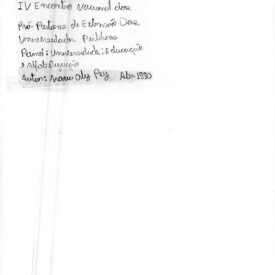 IV Encontro Nacional dos
Pró-Reitores de Extensão Das
Universidades Públicas
Painel: Universidade: Educação
e Alfabetização
Autor: Maria Oly Pey Abr. 1990